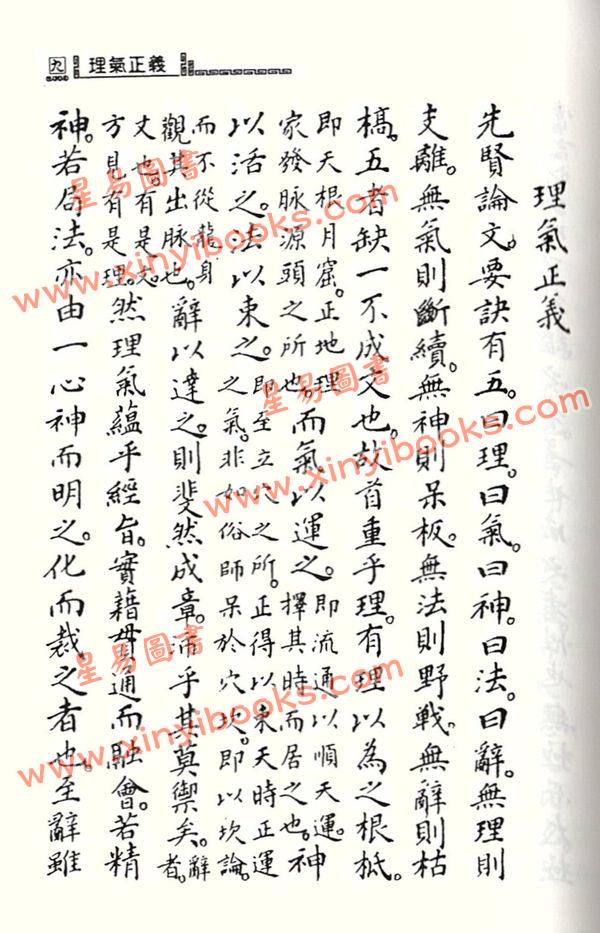 九 理氣正義
理氣正義
先賢論文。要訣有五。曰理。曰氣。曰神。曰法。曰辭。無理則
支離。無氣則斷續。無神則呆板。無法則野戰。無辭則枯
槁。五者缺一不成文也。故首重乎理。有理以為之根柢。
即天根月窟。正地理家發脈源頭之所也。而氣以運之。即流通以順天運。擇其時而居之也。神
以活之。法以束之。即至立穴之所。正得以束天時正運之氣。非如俗師呆於穴坎。即以坎論。
而不從龍身觀其出脈也。辭以達之。則斐然成章。沛乎其莫禦矣。辭者。
文也。有是志方見有是理。然理氣蘊乎經旨。實藉貫通而融會。若精
神。若局法。亦由一心神而明之。化而裁之者也。至辭雖
星易圖書
www.xinyibooks.com
星易圖書
www.xinyibooks.com
星易圖書
www.xinyibooks.com